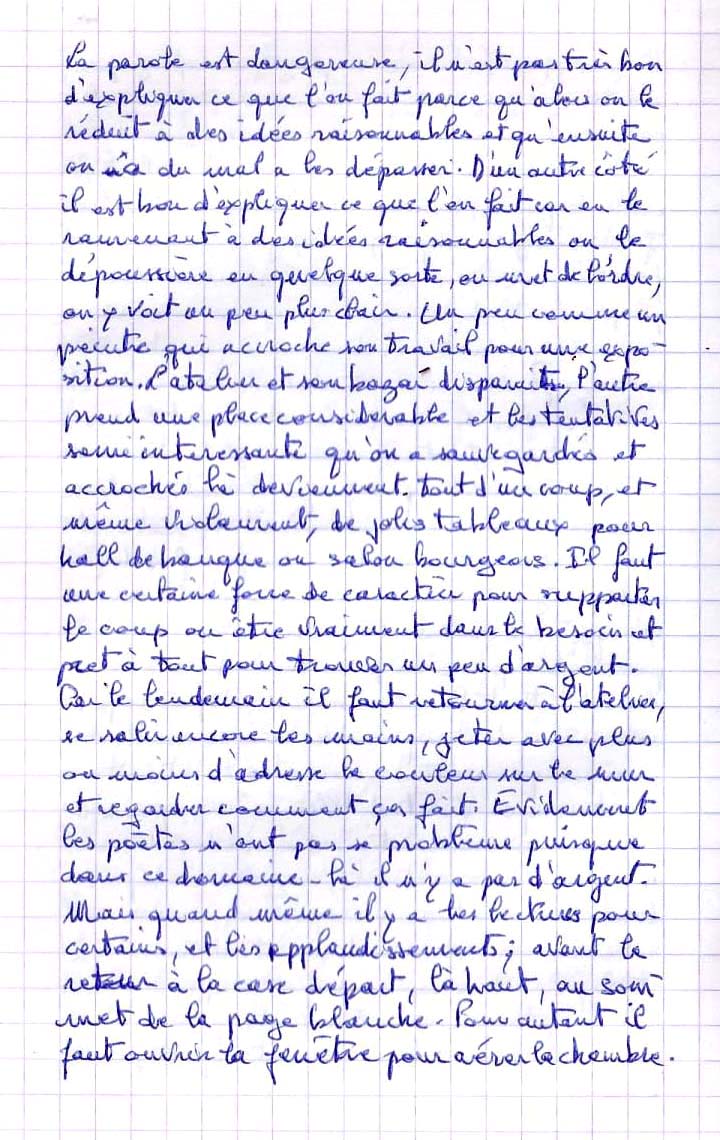 La parole est dangereuse, il n'est pas très bon
d'expliquer ce que l'on fait parce qu'alors on le
réduit à des idées raisonnables et qu'ensuite
on a du mal a les dépasser. D'un autre côté
il est bon d'expliquer ce que l'on fait car en le
ramenant à des idées raisonnables on le
dépoussière en quelque sorte, on met de l'ordre,
on y voit un peu plus clair. Un peu comme un
peintre qui accroche son travail pour une expo-
sition. L'atelier et son bazar disparaît, l'autre
prend une place considérable et les tentatives
semi interessante qu'on a sauvegardés et
accrochés là deviennent tout d'un coup, et
même violemment, de jolis tableaux pour
hall de banque ou salon bourgeois. Il faut
une certaine force de caractère pour supporter
le coup ou être vraiment dans le besoin et
pret à tout pour trouver un peu d'argent.
Car le lendemain il faut retourner à l'atelier,
se salir encore les mains, jeter avec plus
ou moins d'adresse la couleur sur le mur
et regarder comment ça fait. Evidemment
les poètes n'ont pas se problème puisque
dans ce domaine-là il n'y a pas d'argent.
Mais quand même il y a les lectures pour
certains, et les applaudissements ; avant le
retour à la case départ, là haut, au som-
met de la page blanche. Pour autant il
faut ouvrir la fenêtre pour aérer la chambre.